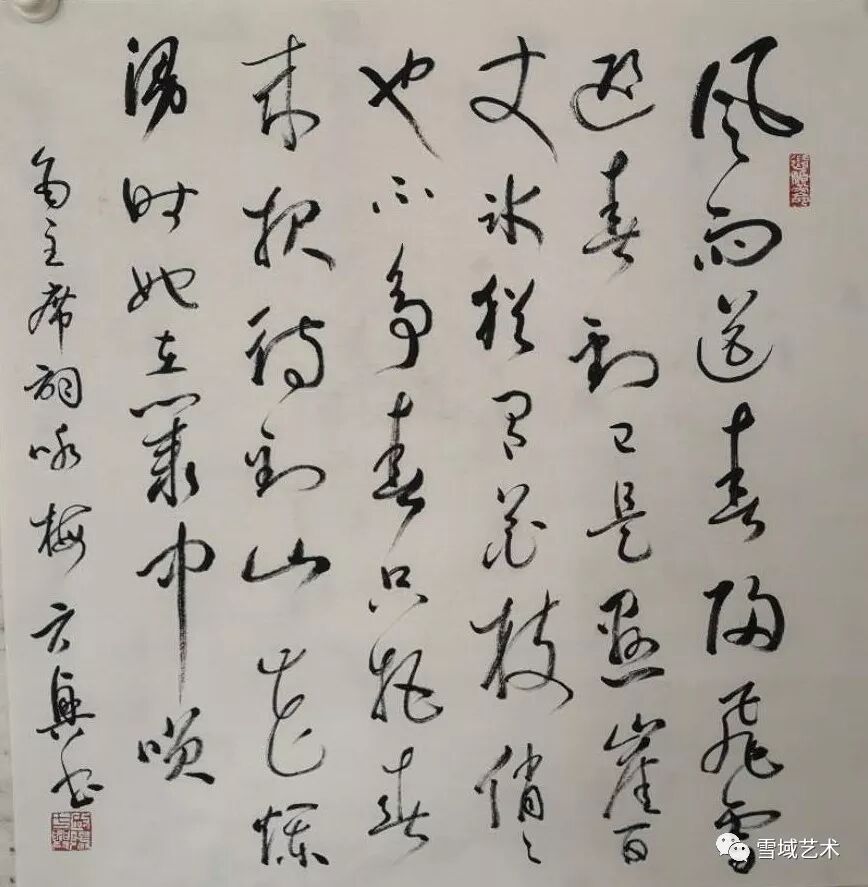 风雨送春归飛雪
迎春到已是悬崖百
丈冰犹有花枝俏〻
也不争春只把春
来报待到山花烂
漫时她在叢中咲
主席词咏梅 方興书
雪域艺术